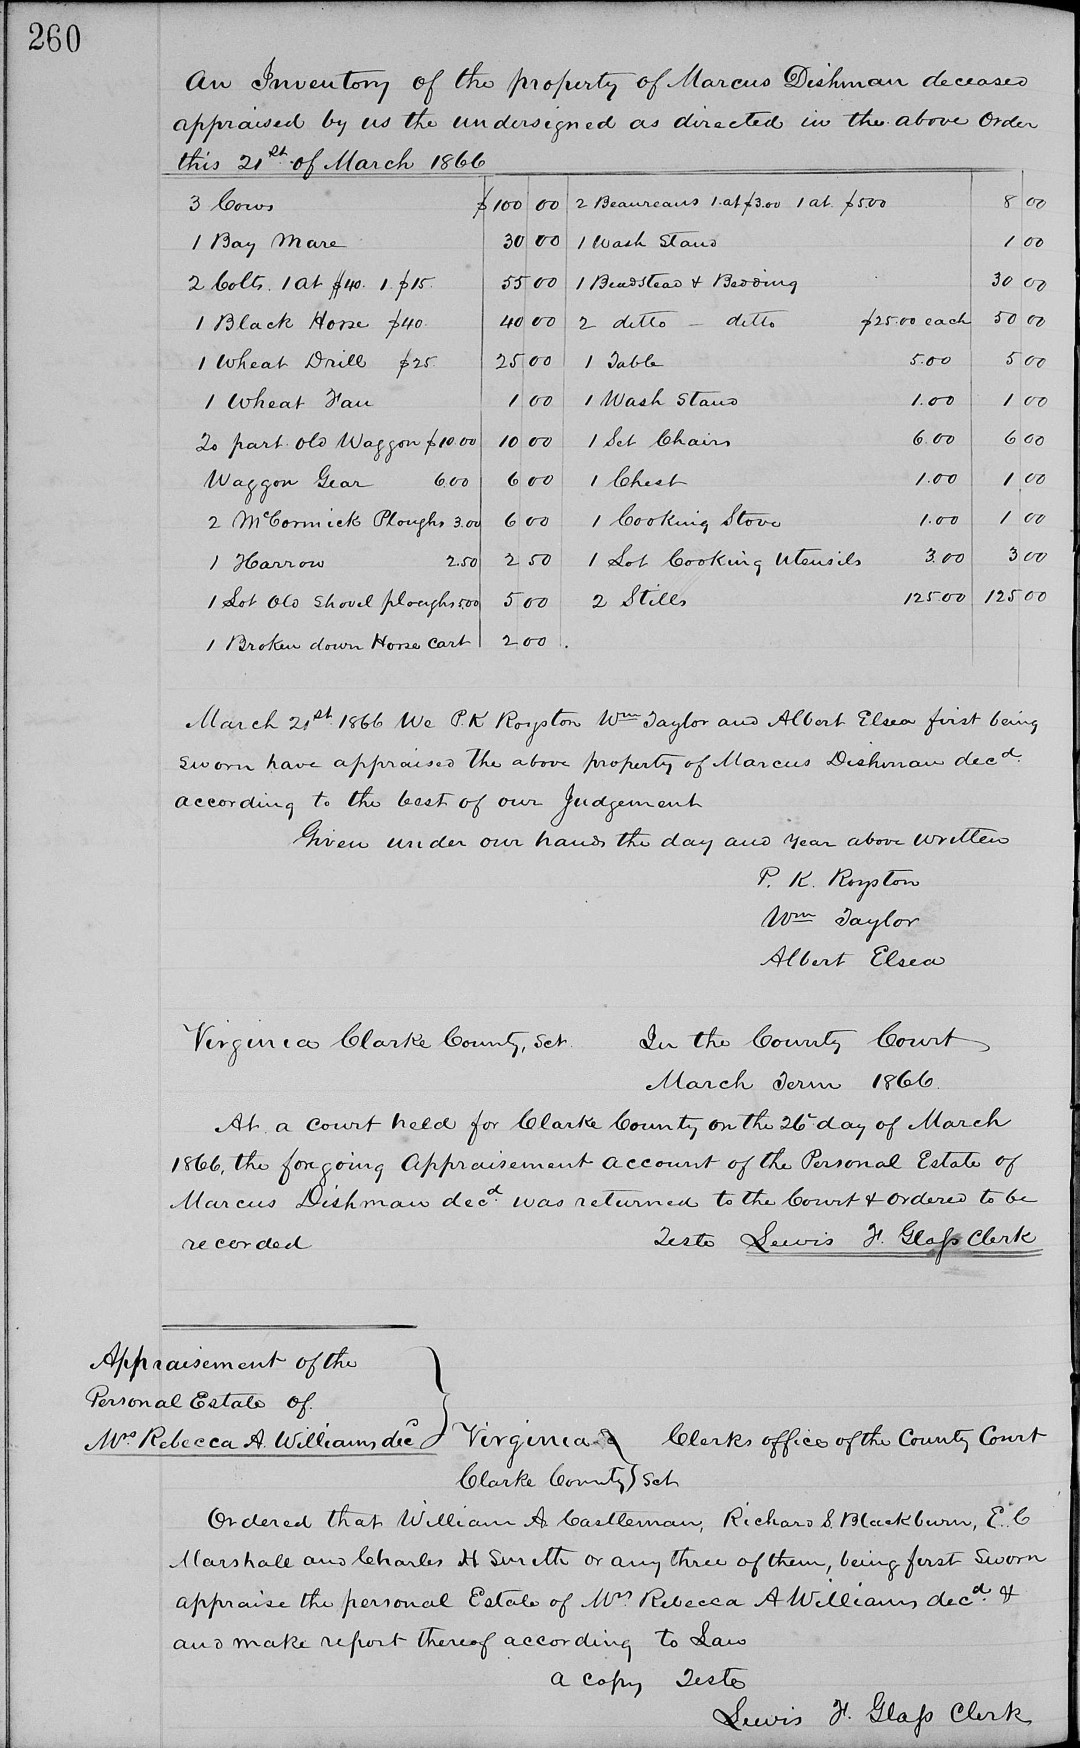 260
An Inventory of the property of Marcus Dishman deceased
appraised by us the undersigned as directed in the above Order
this 21st of March 1866
3 Cows $100 00
1 Bay Mare 30 00
2 Colts. 1 at $40. 1. $15. 55 00
1 Black Horse $40. 40 00
1 Wheat Drill $25. 25 00
1 Wheat Fan 1 00
To part old Waggon $10.00 10 00
Waggon Gear 6.00 6 00
2 McCormick Ploughs 3.00 6 00
1 Harrow 2.50 2 50
1 Lot Old Shovel ploughs 5.00 5 00
1 Broken down Horse cart 2 00.
2 Beaureaus 1 at $3.00 1 at $5.00 8 00
1 Wash Stand 1 00
1 Beadstead & Bedding 30 00
2 ditto - ditto $25.00 each 50 00
1 Table 5.00 5 00
1 Wash Stand 1.00 1 00
1 Set Chairs 6.00 6 00
1 Chest 1.00 1 00
1 Cooking Stove 1.00 1 00
1 Lot Cooking Utensils 3.00 3 00
2 Stills 125 00 125 00
March 21st 1866 We P. K Royston Wm Taylor and Albert Elsea first being
sworn have appraised the above property of Marcus Dishman decd.
according to the best of our Judgement
Given under our hands the day and year above written
P. K. Royston
Wm Taylor
Albert Elsea
Virginia Clarke County, Sct. In the County Court
March Term 1866.
At a court held for Clarke County on the 26 day of March
1866, the foregoing Appraisement account of the Personal Estate of
Marcus Dishman decd. was returned to the Court & ordered to be
recorded Teste Lewis F. Glass Clerk
Appraisement of the
Personal Estate of.
Mrs Rebecca A. Williams decd
Virginia Clerks office of the County Court
Clarke County } Sct
Ordered that William A. Castleman, Richard S. Blackburn, E. C
Marshall and Charles H Smith or any three of them, being first sworn
appraise the personal Estate of Mrs Rebecca A Williams decd. &
and make report thereof according to Law
a copy Teste
Lewis F. Glass Clerk